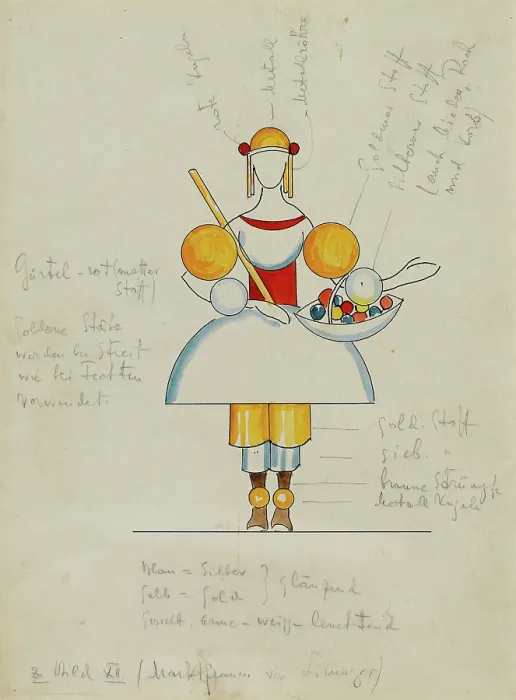 rote Kugeln
Metall
Metallröhre
Goldener Stoff
Silberner Stoff
(auch
und Korb)
Gürtel - rot (matter
Stoff)
Goldene Stäbe
werden bei Streit
wie bei Fechten
verwendet.
gold. Stoff
silb. "
braune Strümpfe
Metall Kugeln
Blau = Silber
Gelb = Gold } glänzend
Gesicht, Arme - weiss - leuchtend
Zu Bild XII (Marktfrauen von Limoges)